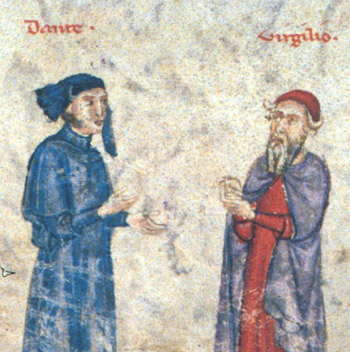 Dante ·
Virgilio ·